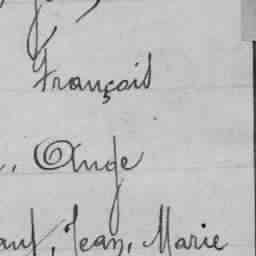 François
, Ange
, Jean, Marie